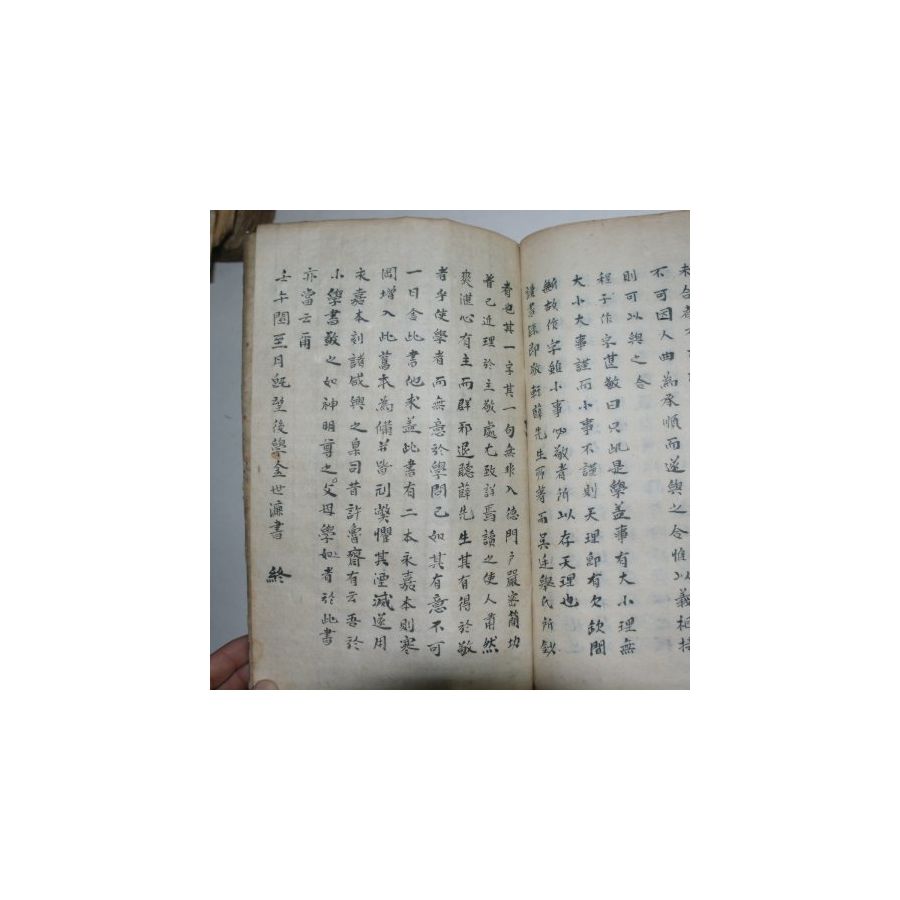 不可因人曲爲承順而遂與之合惟以義相持
則可以與之合
程子作字甚敬曰只此是學盖事有大小理無
大小大事謹而小事不謹則天理卽有欠缺間
斷故作字雖小事必敬者所以存天理也
讀書錄卽敬軒薛先生所著而吳廷擧氏所鈔
者也其一字其一句無非入德門戶嚴密簡切
普已近理於主敬處尤致詳焉讀之使人肅然
爽湛心有主而群邪退聽薛先生其有得於敬
者乎使學者而無意於學問已如其有意不可
一日舍此書他求盖此書有二本永嘉本則寒
岡增入此舊本爲備若皆刓獘懼其湮滅遂用
永嘉本刻諸咸興之臬司昔許魯齋有云吾於
小學書敬之如神明尊之父母學如者於此書
亦當云爾
壬午閏至月旣望後學金世濂書 終